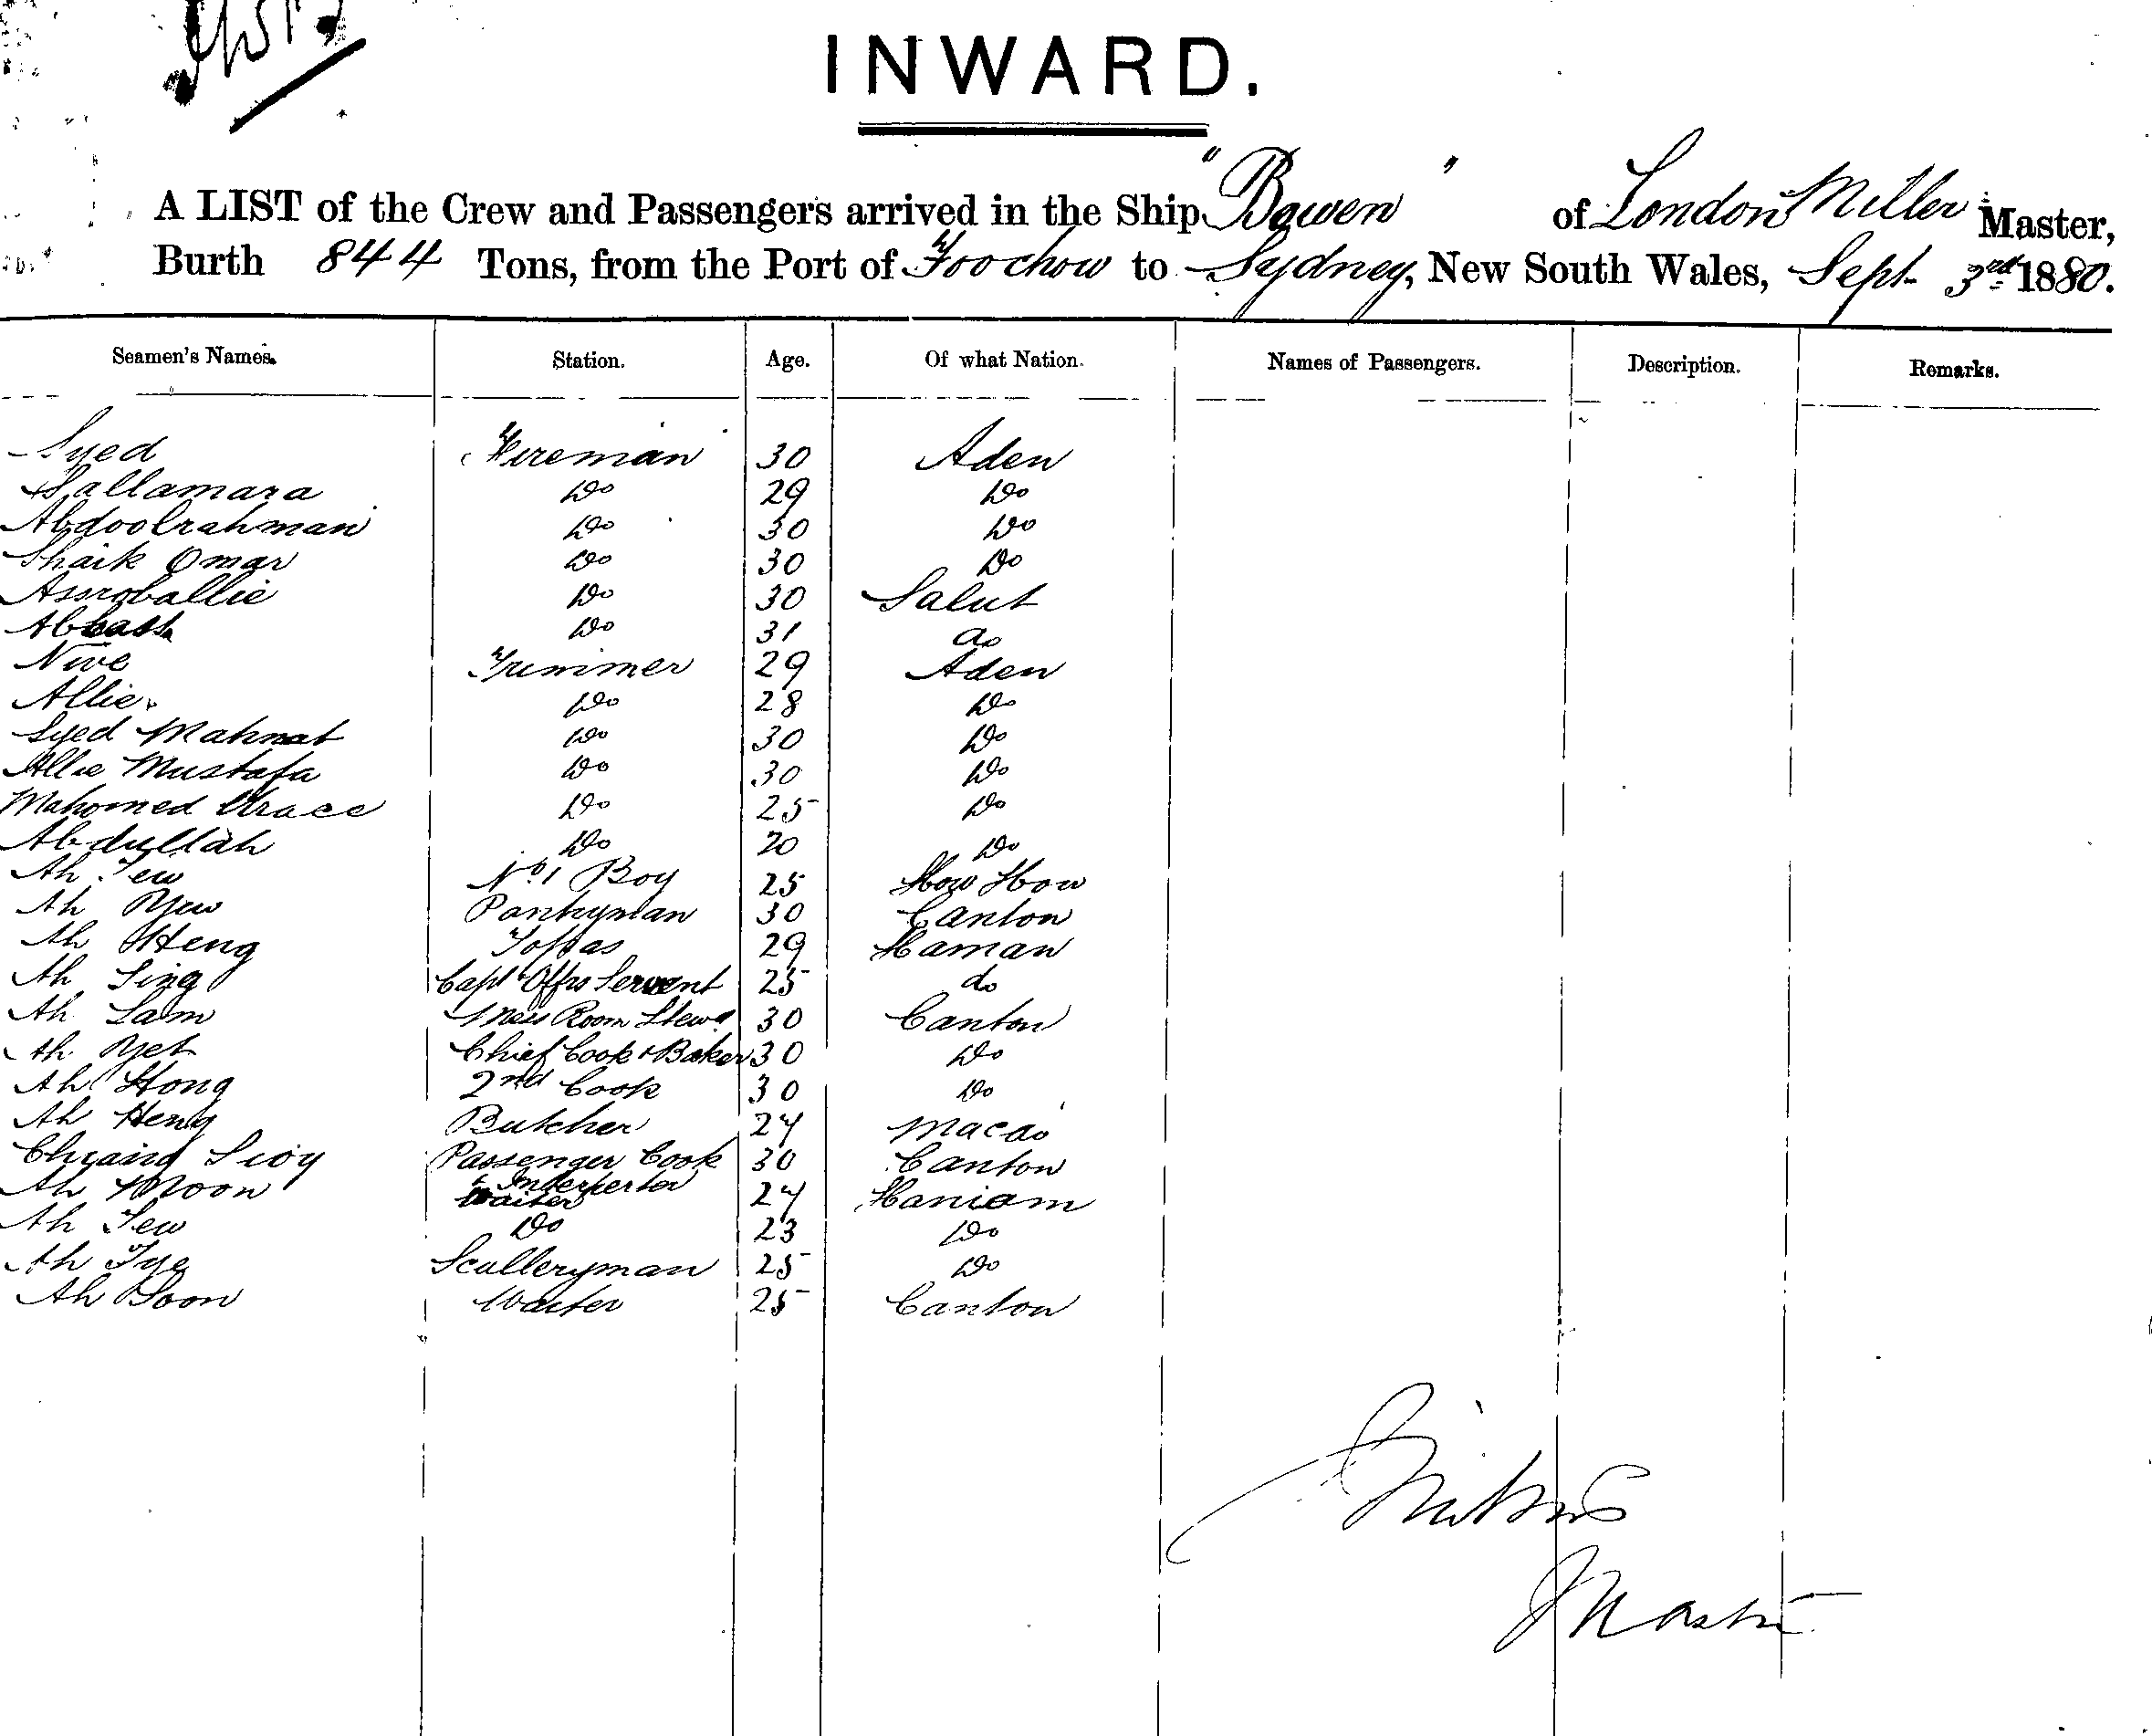 INWARD.
A LIST of the Crew and Passengers arrived in the Ship "Bowen" of London Miller Master,
Burth 844 Tons, from the Port of Foochow to Sydney, New South Wales, Sept 3rd 1880.
Seamen's Names. Station. Age. Of what Nation. Names of Passengers. Description. Remarks.
Syed Fireman 30 Aden
Sallamara Do 29 Do
Abdoolrahman Do 30 Do
Shaik Omar Do 30 Do
Assroballie Do 30 Salut
Abbash Do 31 do
Nive Trimmer 29 Aden
Allie Do 28 Do
Syed Mahmat Do 30 Do
Allie Mustafa Do 30 Do
Mahomed Do 25 Do
Abdullah Do 20 Do
Ah Tew No 1 Boy 25 How How
Ah Yew Pantryman 30 Canton
Ah Heng Topas 29 Hainan
Ah Sing Capt & Offrs Servent 25 do
Ah Lam Mess Room Stewd 30 Canton
Ah Yet Chief Cook & Baker 30 Do
Ah Hong 2nd Cook 30 Do
Ah Heng Butcher 24 Macao
Sioy Passenger Cook 30 Canton
& Interperter
Ah Moon Waiter 24 Haniam
Ah Sew Do 23 Do
Ah Tye Sculleryman 25 Do
Ah Soon Waiter 25 Canton
Master